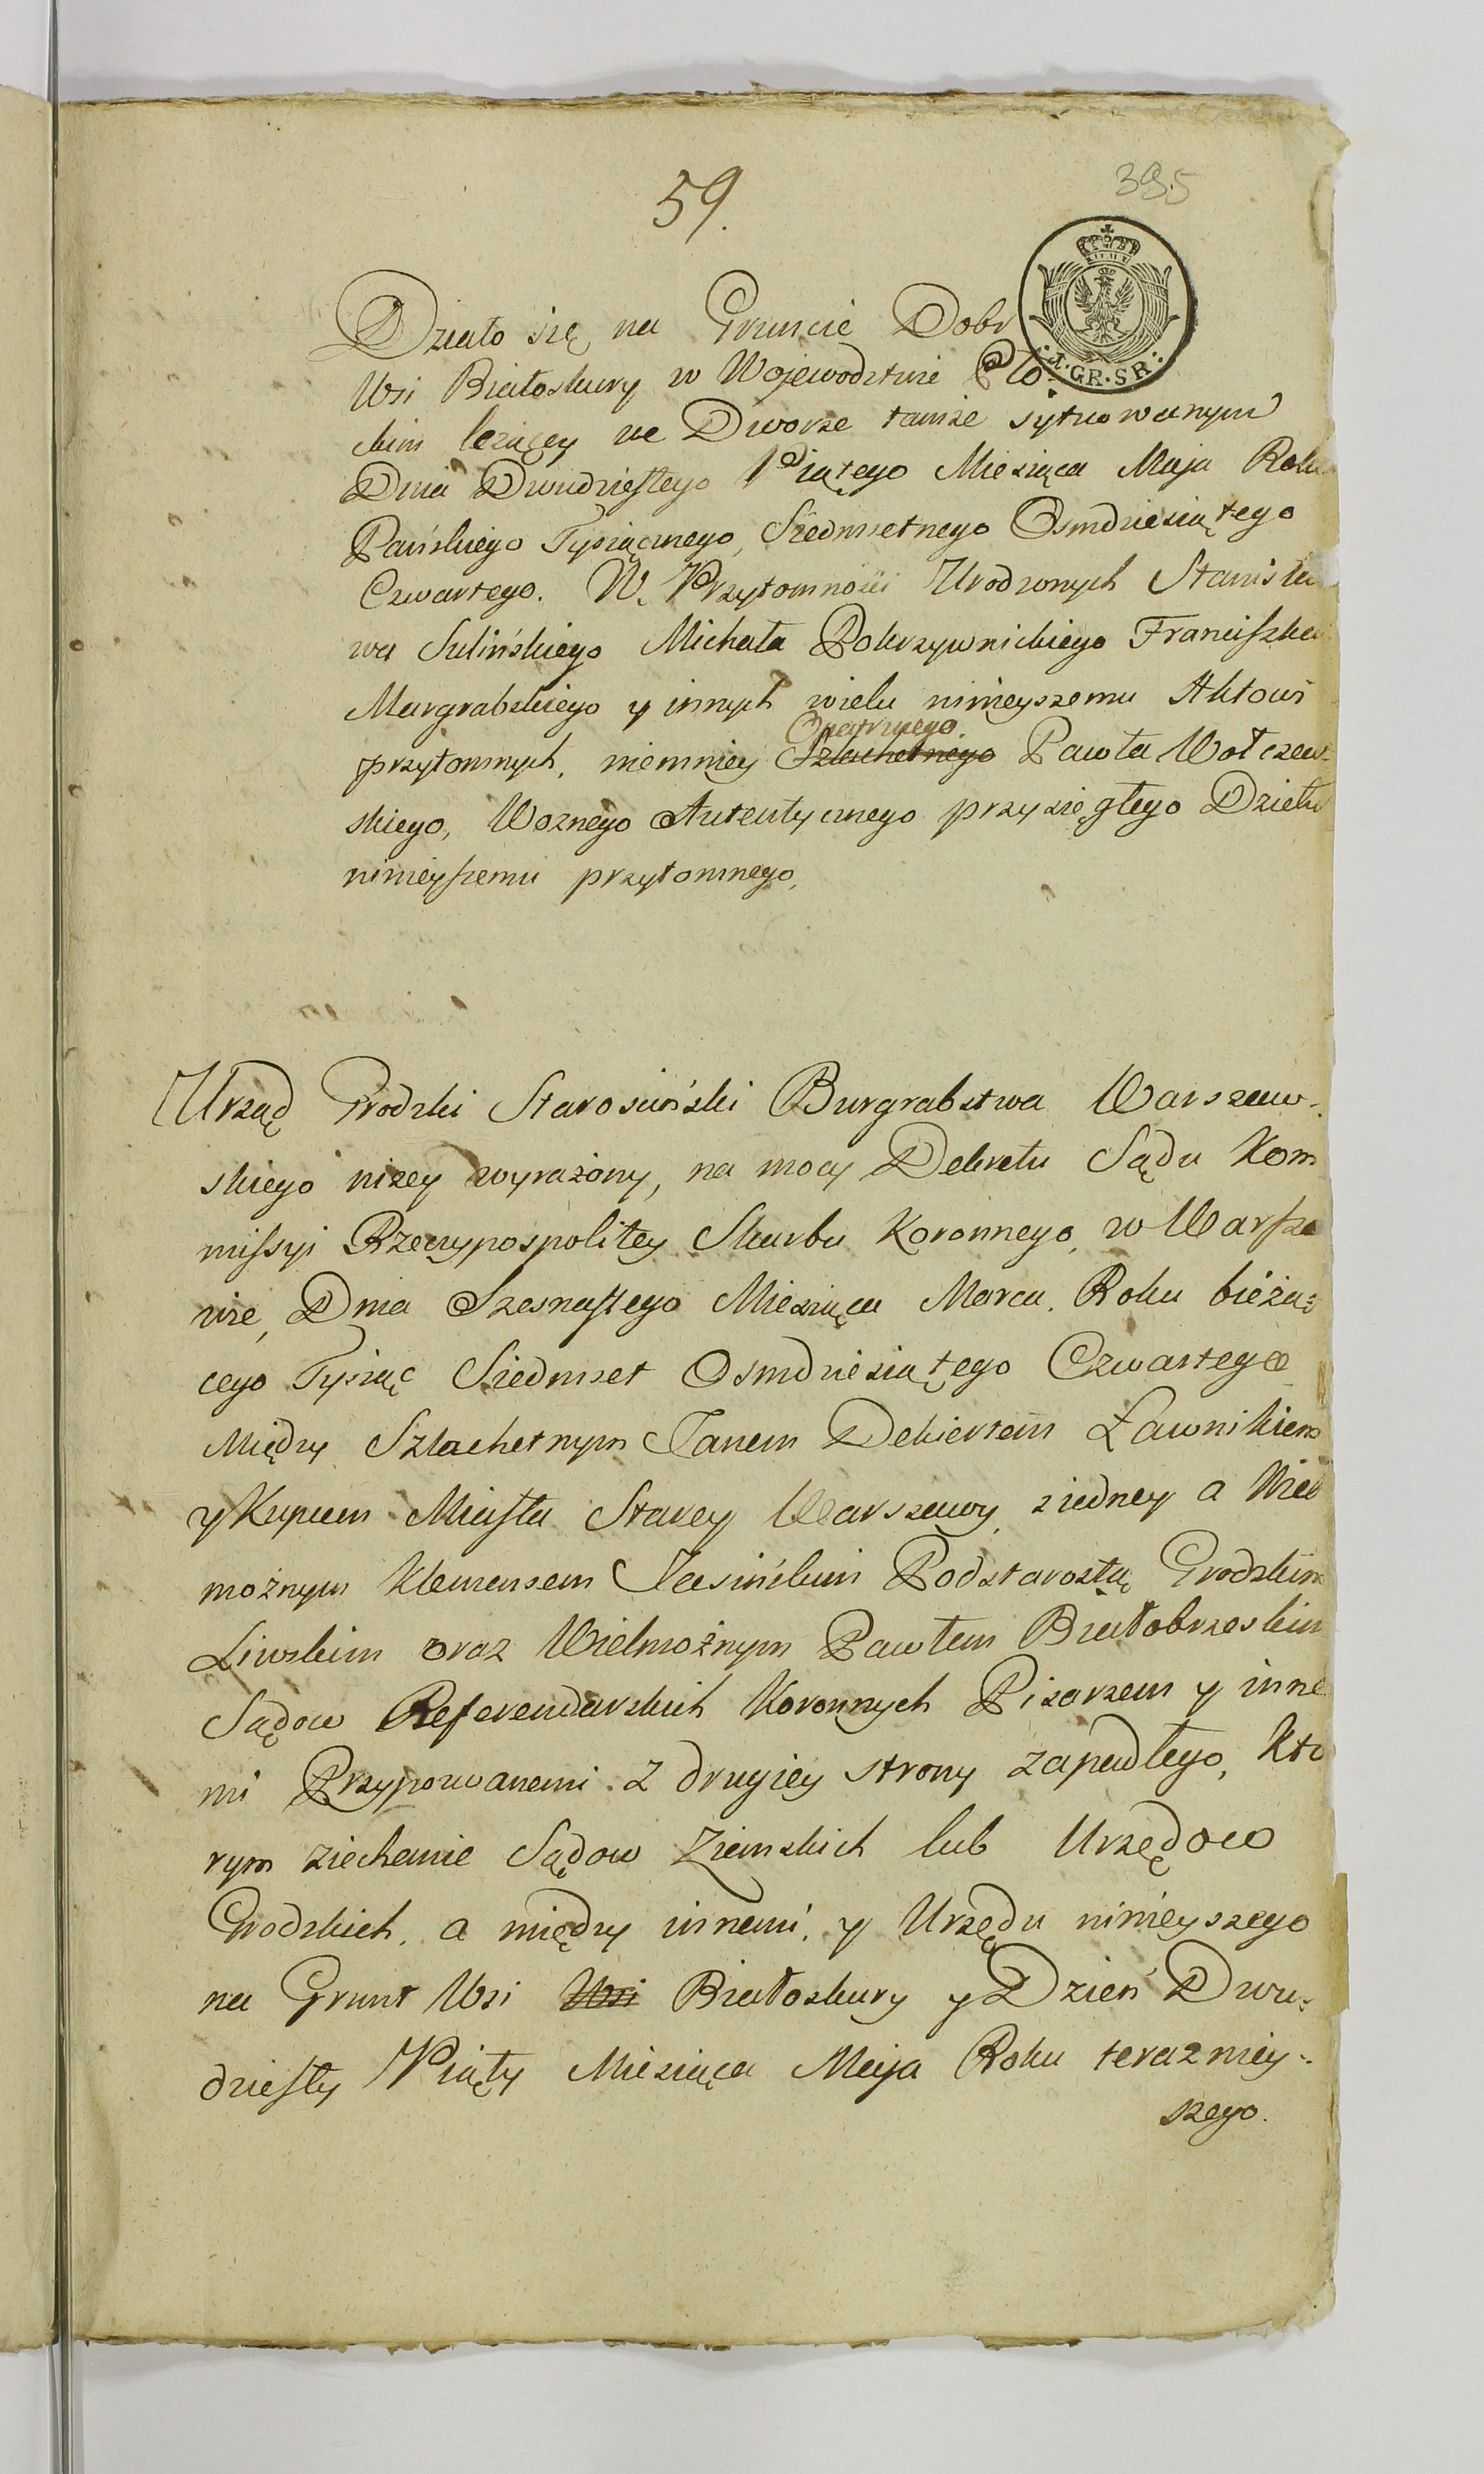 395
59.
Działo się na Gruncie Dobr
Wsi Białoskury w Wojewodztwie Pło-
ckim leżącey we Dworze tamże sytuowanym
Dnia Dwudziestego Piątego Miesiąca Maja Roku
Pańskiego Tysiącznego, Siedmsetnego Osmdziesiątego
Czwartego. W Przytomności Urodzonych Stanisła
wa Sulińskiego Michała Pokrzywnickiego Franciszka
Margrabskiego y innych wielu ninieyszemu Aktowi
Opatrznego
przytomnych, niemniey Szlachetnego Pawła Wołczew-
skiego, Woznego Autentycznego przysięgłego Dziełu
ninieyszemu przytomnego,
Urząd Grodzki Starościński Burgrabstwa Warszaw-
skiego niżey wyrażony, na mocy Dekretu Sądu Kom
missyi Rzeczypospolitey Skarbu Koronnego, w Warsza
wie, Dnia Szesnastego Miesiąca Marca, Roku bieżą-
cego Tysiąc Siedmset Osmdziesiątego Czwartego
Między Szlachetnym Janem Dekiertem Ławnikiem
y Kupcem Miasta Starey Warszawy, z iedney a Wiel
możnym Klemensem Jasińskim Podstarostą Grodzkim
Liwskim oraz Wielmożnym Pawłem Białobrzeskim
Sądow Referendarskich Koronnych Pisarzem y inne
mi Przypozwanemi z drugiey strony zapadłego, Kto
rym ziechanie Sądow Ziemskich lub Urzędow
Grodzkich, a między innemi, y Urzędu ninieyszego
na Grunt Wsi Wsi Białoskury y Dzień Dwu-
dziesty Piąty Miesiąca Maja Roku terazniey-
szego.
1.GR.SR.